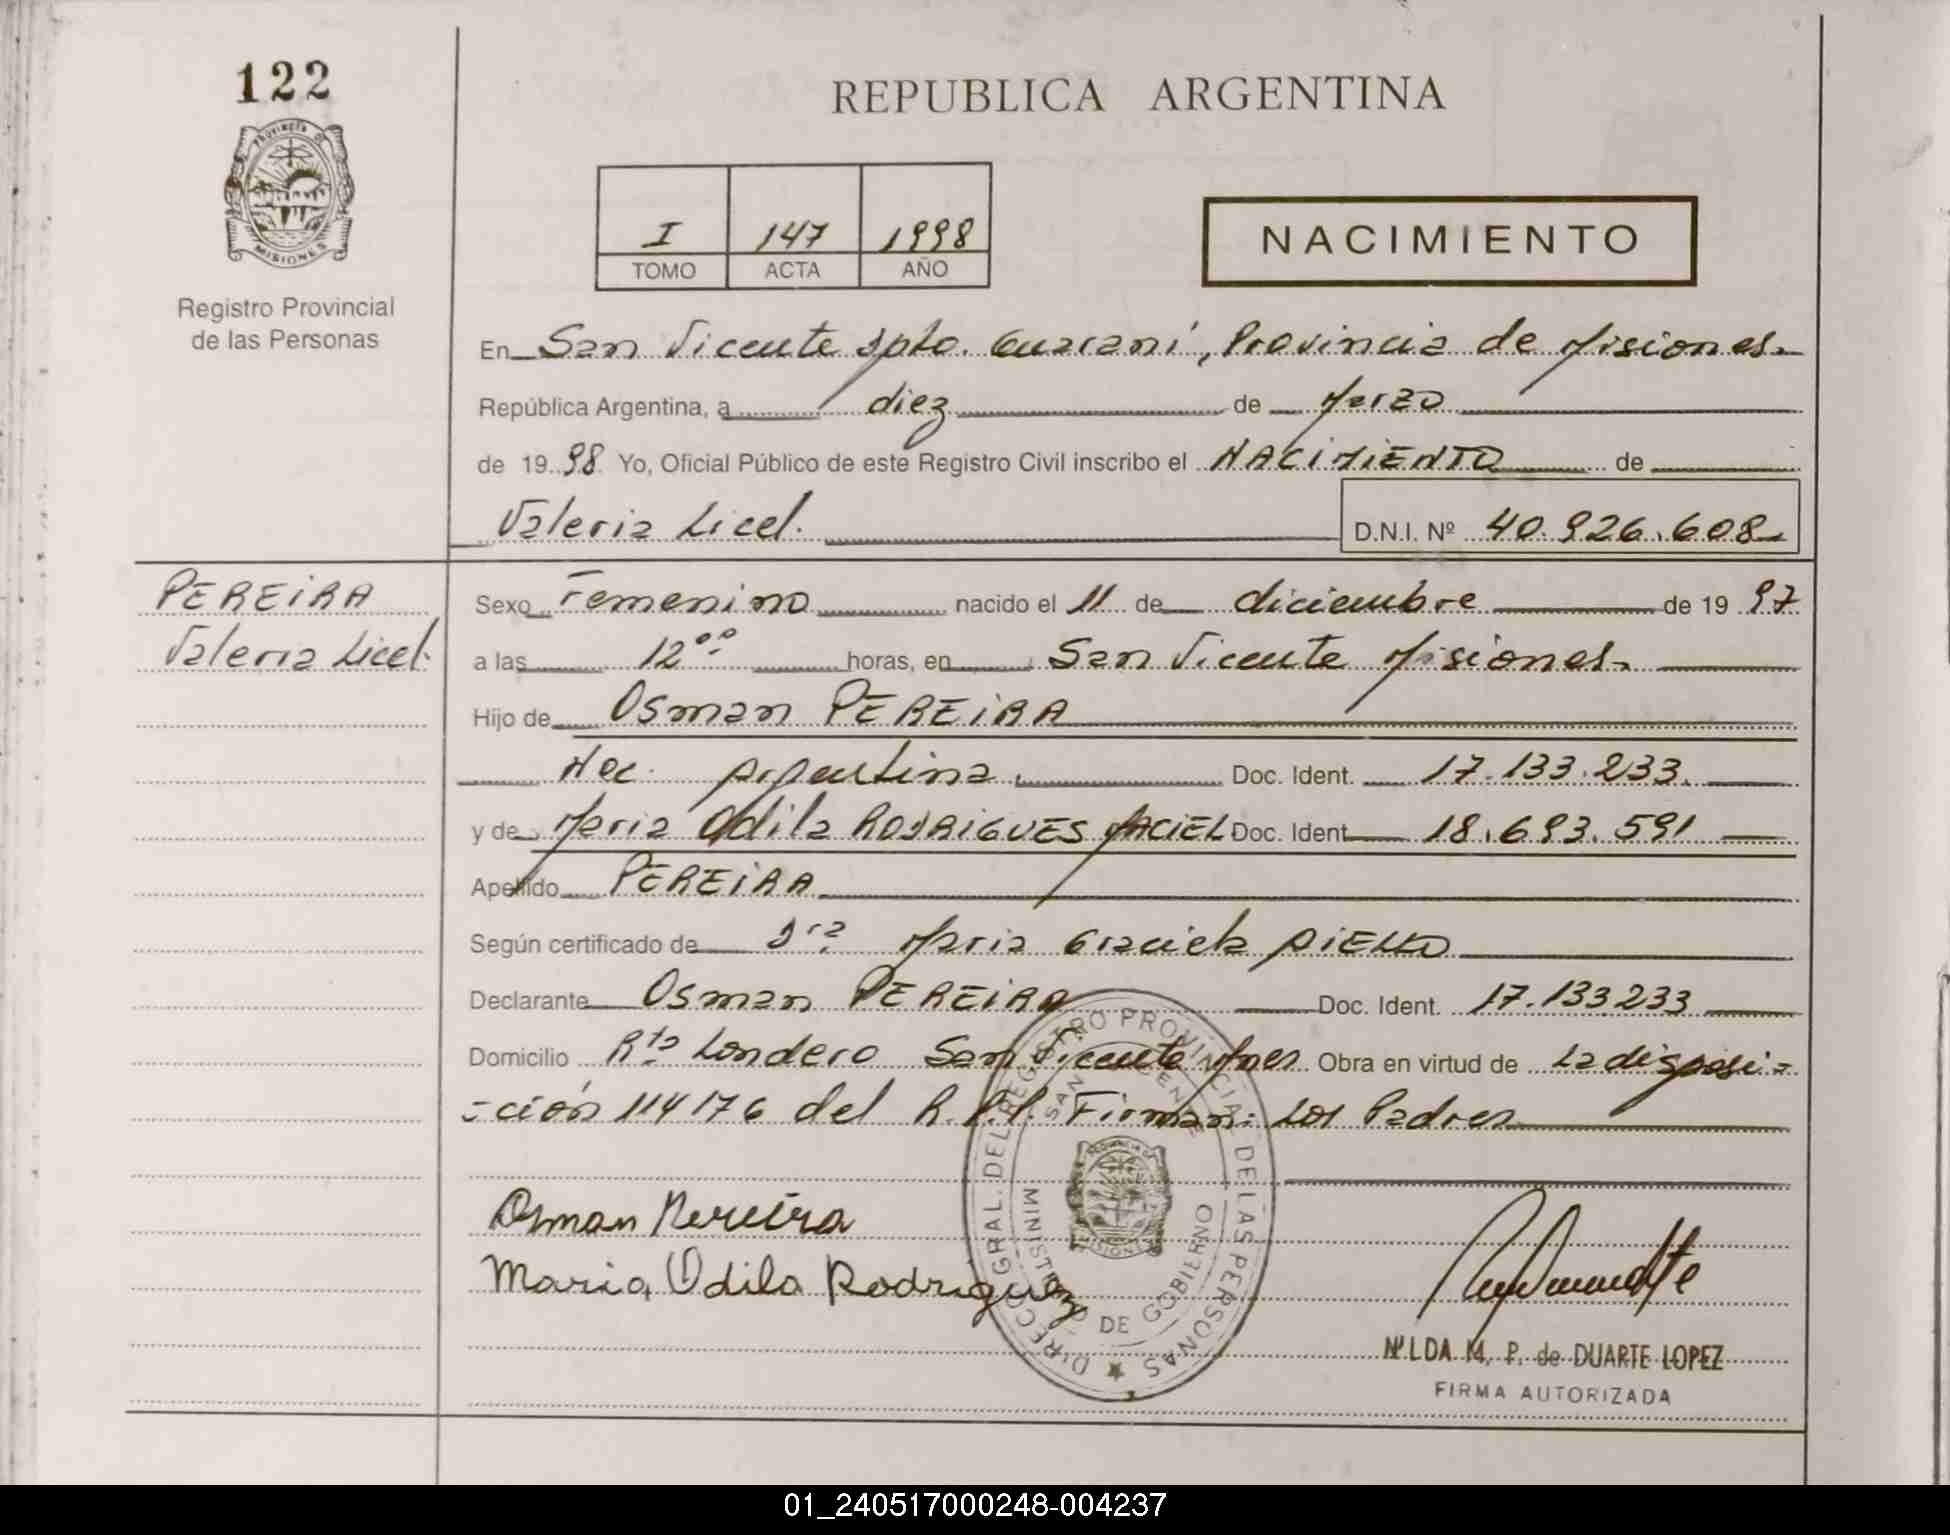 122
REPUBLICA ARGENTINA
PROVINCIA DE
MISIONES
Registro Provincial
de las Personas
I 147 1998
TOMO ACTA AÑO
NACIMIENTO
En San Vicente Dpto. Guaraní, Provincia de Misiones
República Argentina, a diez de Marzo
de 19 98 Yo, Oficial Público de este Registro Civil inscribo el NACIMIENTO de
Valeria Licel. D.N.I. Nº 40.926.608
PEREIRA
Valeria Licel.
Sexo Femenino nacido el 11 de diciembre de 19 97
a las 12 ºº horas, en San Vicente Misiones
Hijo de Osman PEREIRA
Nac. Argentina. Doc. Ident. 17.133.233.
y de Maria Odila RODRIGUES MACIEL Doc. Ident. 18.693.591
Apellido PEREIRA
Según certificado de Dra Maria Graciela AIELLO
Declarante Osman PEREIRA Doc. Ident. 17.133233
Domicilio Rta Londero San Vicente Mnes Obra en virtud de La disposi=
=ción 114176 del R.P.P. Firman: Los Padres
Osman Pereira
Maria Odila Rodriguez
DIREC. GRAL. DEL REGISTRO PROVINCIAL DE LAS PERSONAS
SAN VICENTE
MINISTERIO DE GOBIERNO
PROVINCIA DE
MISIONES
NILDA M. P. de DUARTE LOPEZ
FIRMA AUTORIZADA
01_240517000248-004237